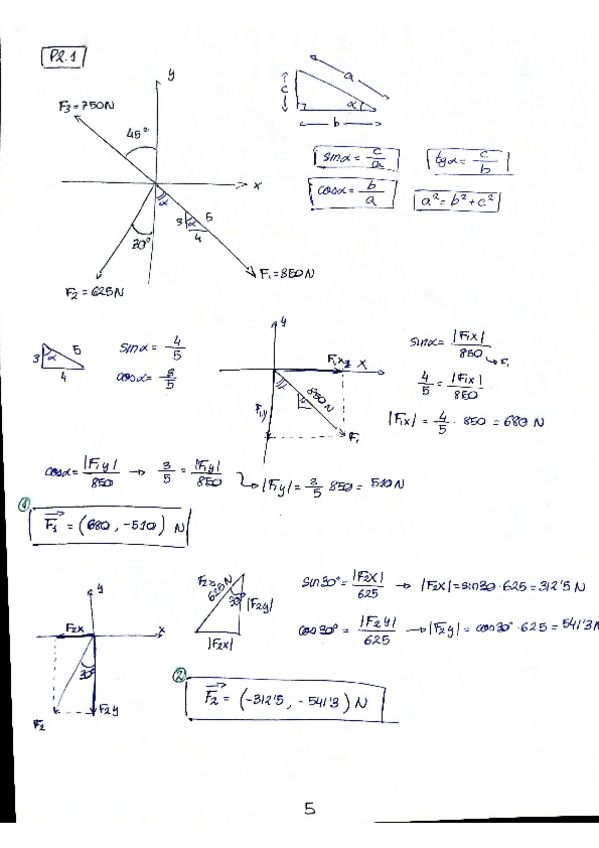 P2.1
y
F3=750N
45°
x
α
3 5
α
4
30°
F1=850N
F2=625N
a
c
α
b
sinα = c/a
tgα = c/b
cosα = b/a
a² = b² + c²
3 5
α
4
sinα = 4/5
cosα = 3/5
y
F1x
x
850N
F1y
F1
sinα = |F1x|/850 → F1
4/5 = |F1x|/850
|F1x| = 4/5 · 850 = 680 N
cosα = |F1y|/850 → 3/5 = |F1y|/850
→ |F1y| = 3/5 850 = 510N
①
F1 = (680, -510) N
y
F2x
x
30°
F2
F2y
F2=625N
30°
|F2y|
|F2x|
sin30° = |F2x|/625 → |F2x| = sin30·625 = 312'5 N
cos30° = |F2y|/625 → |F2y| = cos30°·625 = 541'3 N
②
F2 = (-312'5, -541'3) N
5